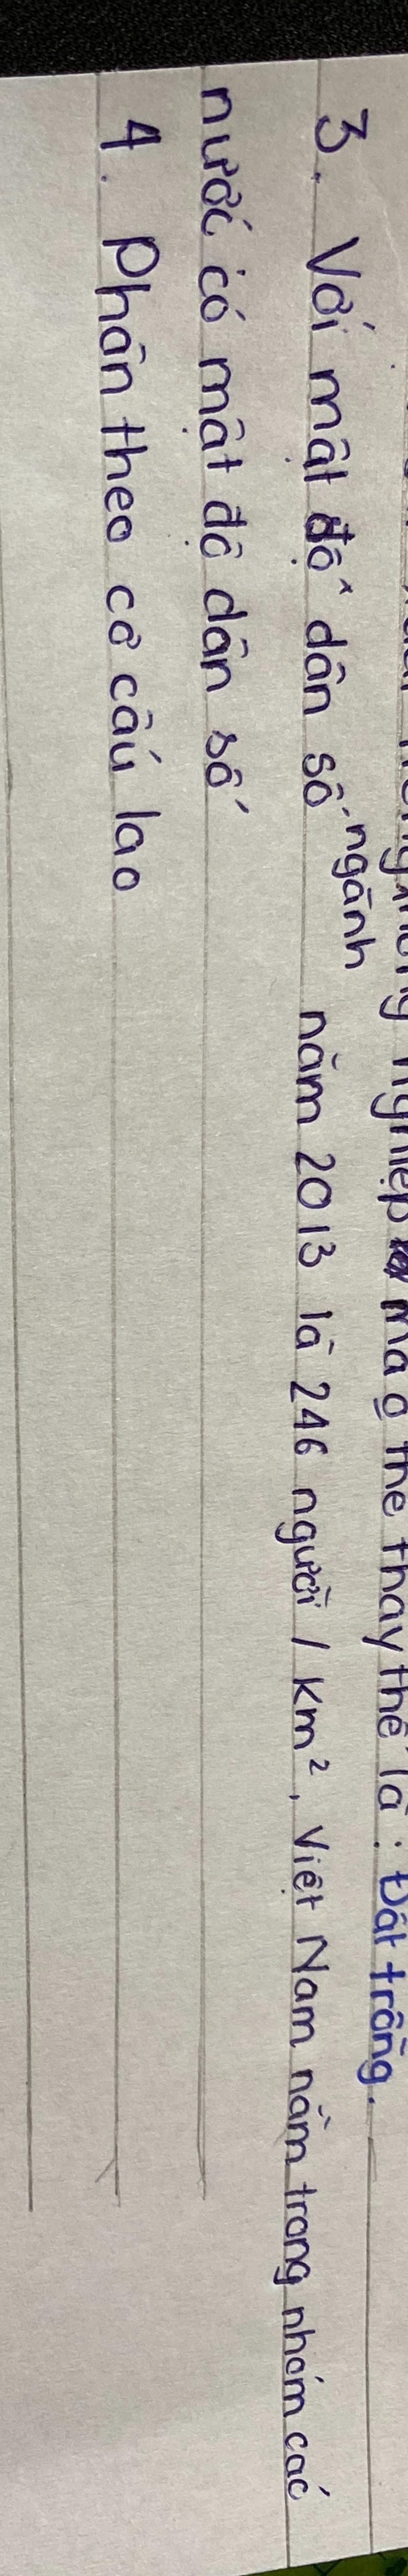 nghiệp mà o thể thay thế là: Đất trồng.
3. Với mật độ dân số năm 2013 là 246 người / Km², Việt Nam nằm trong nhóm các
nước có mật độ dân số
ngành
4. Phân theo cơ cấu lao